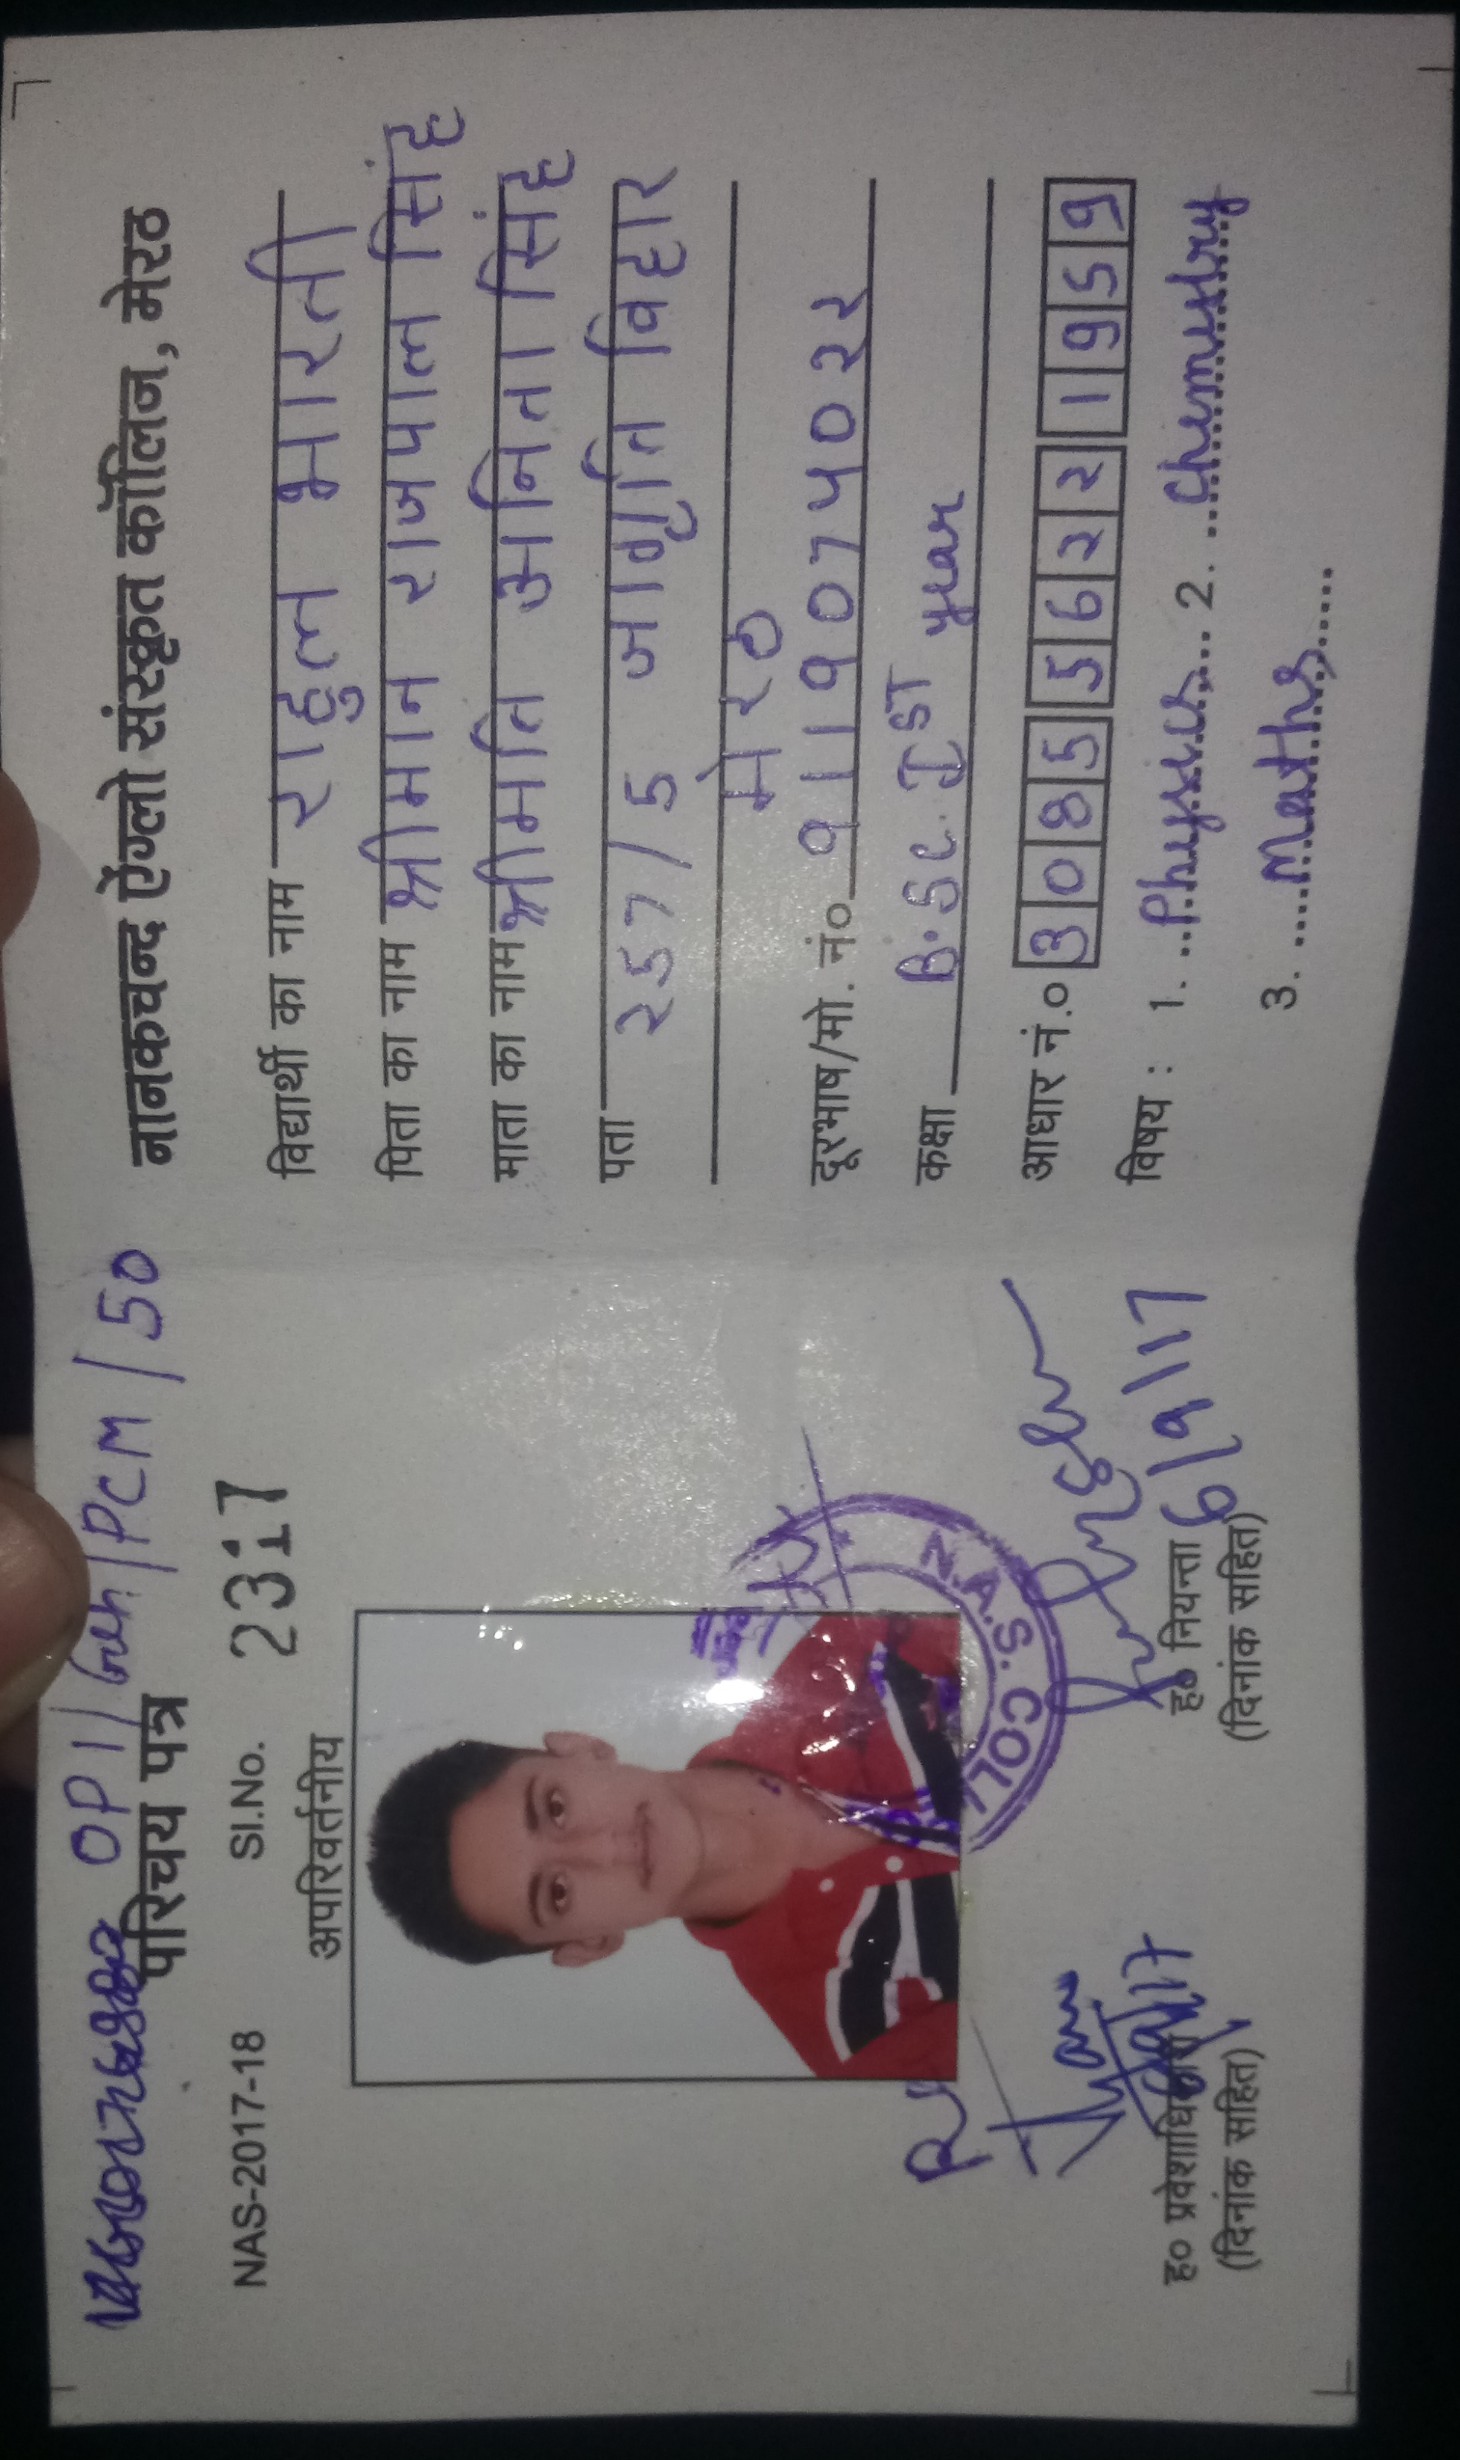 OP1/Gen/PCM/50
परिचय पत्र
NAS-2017-18 SI.No. 2317
अपरिवर्तनीय
N.A.S. COLL
ह० प्रवेशाधि
(दिनांक सहित)
ह० नियन्ता 6/9/17
(दिनांक सहित)
नानकचन्द ऐंग्लो संस्कृत कॉलिज, मेरठ
विद्यार्थी का नाम राहुल भारती
पिता का नाम श्रीमान राजपाल सिंह
माता का नाम श्रीमति अनिता सिंह
पता 257/5 जागृति विहार
मेरठ
दूरभाष/मो. नं० 9119074022
कक्षा B.Sc. IST year
आधार नं.० 3085 5622 1959
विषय : 1. Physics 2. Chemistry
3. Maths